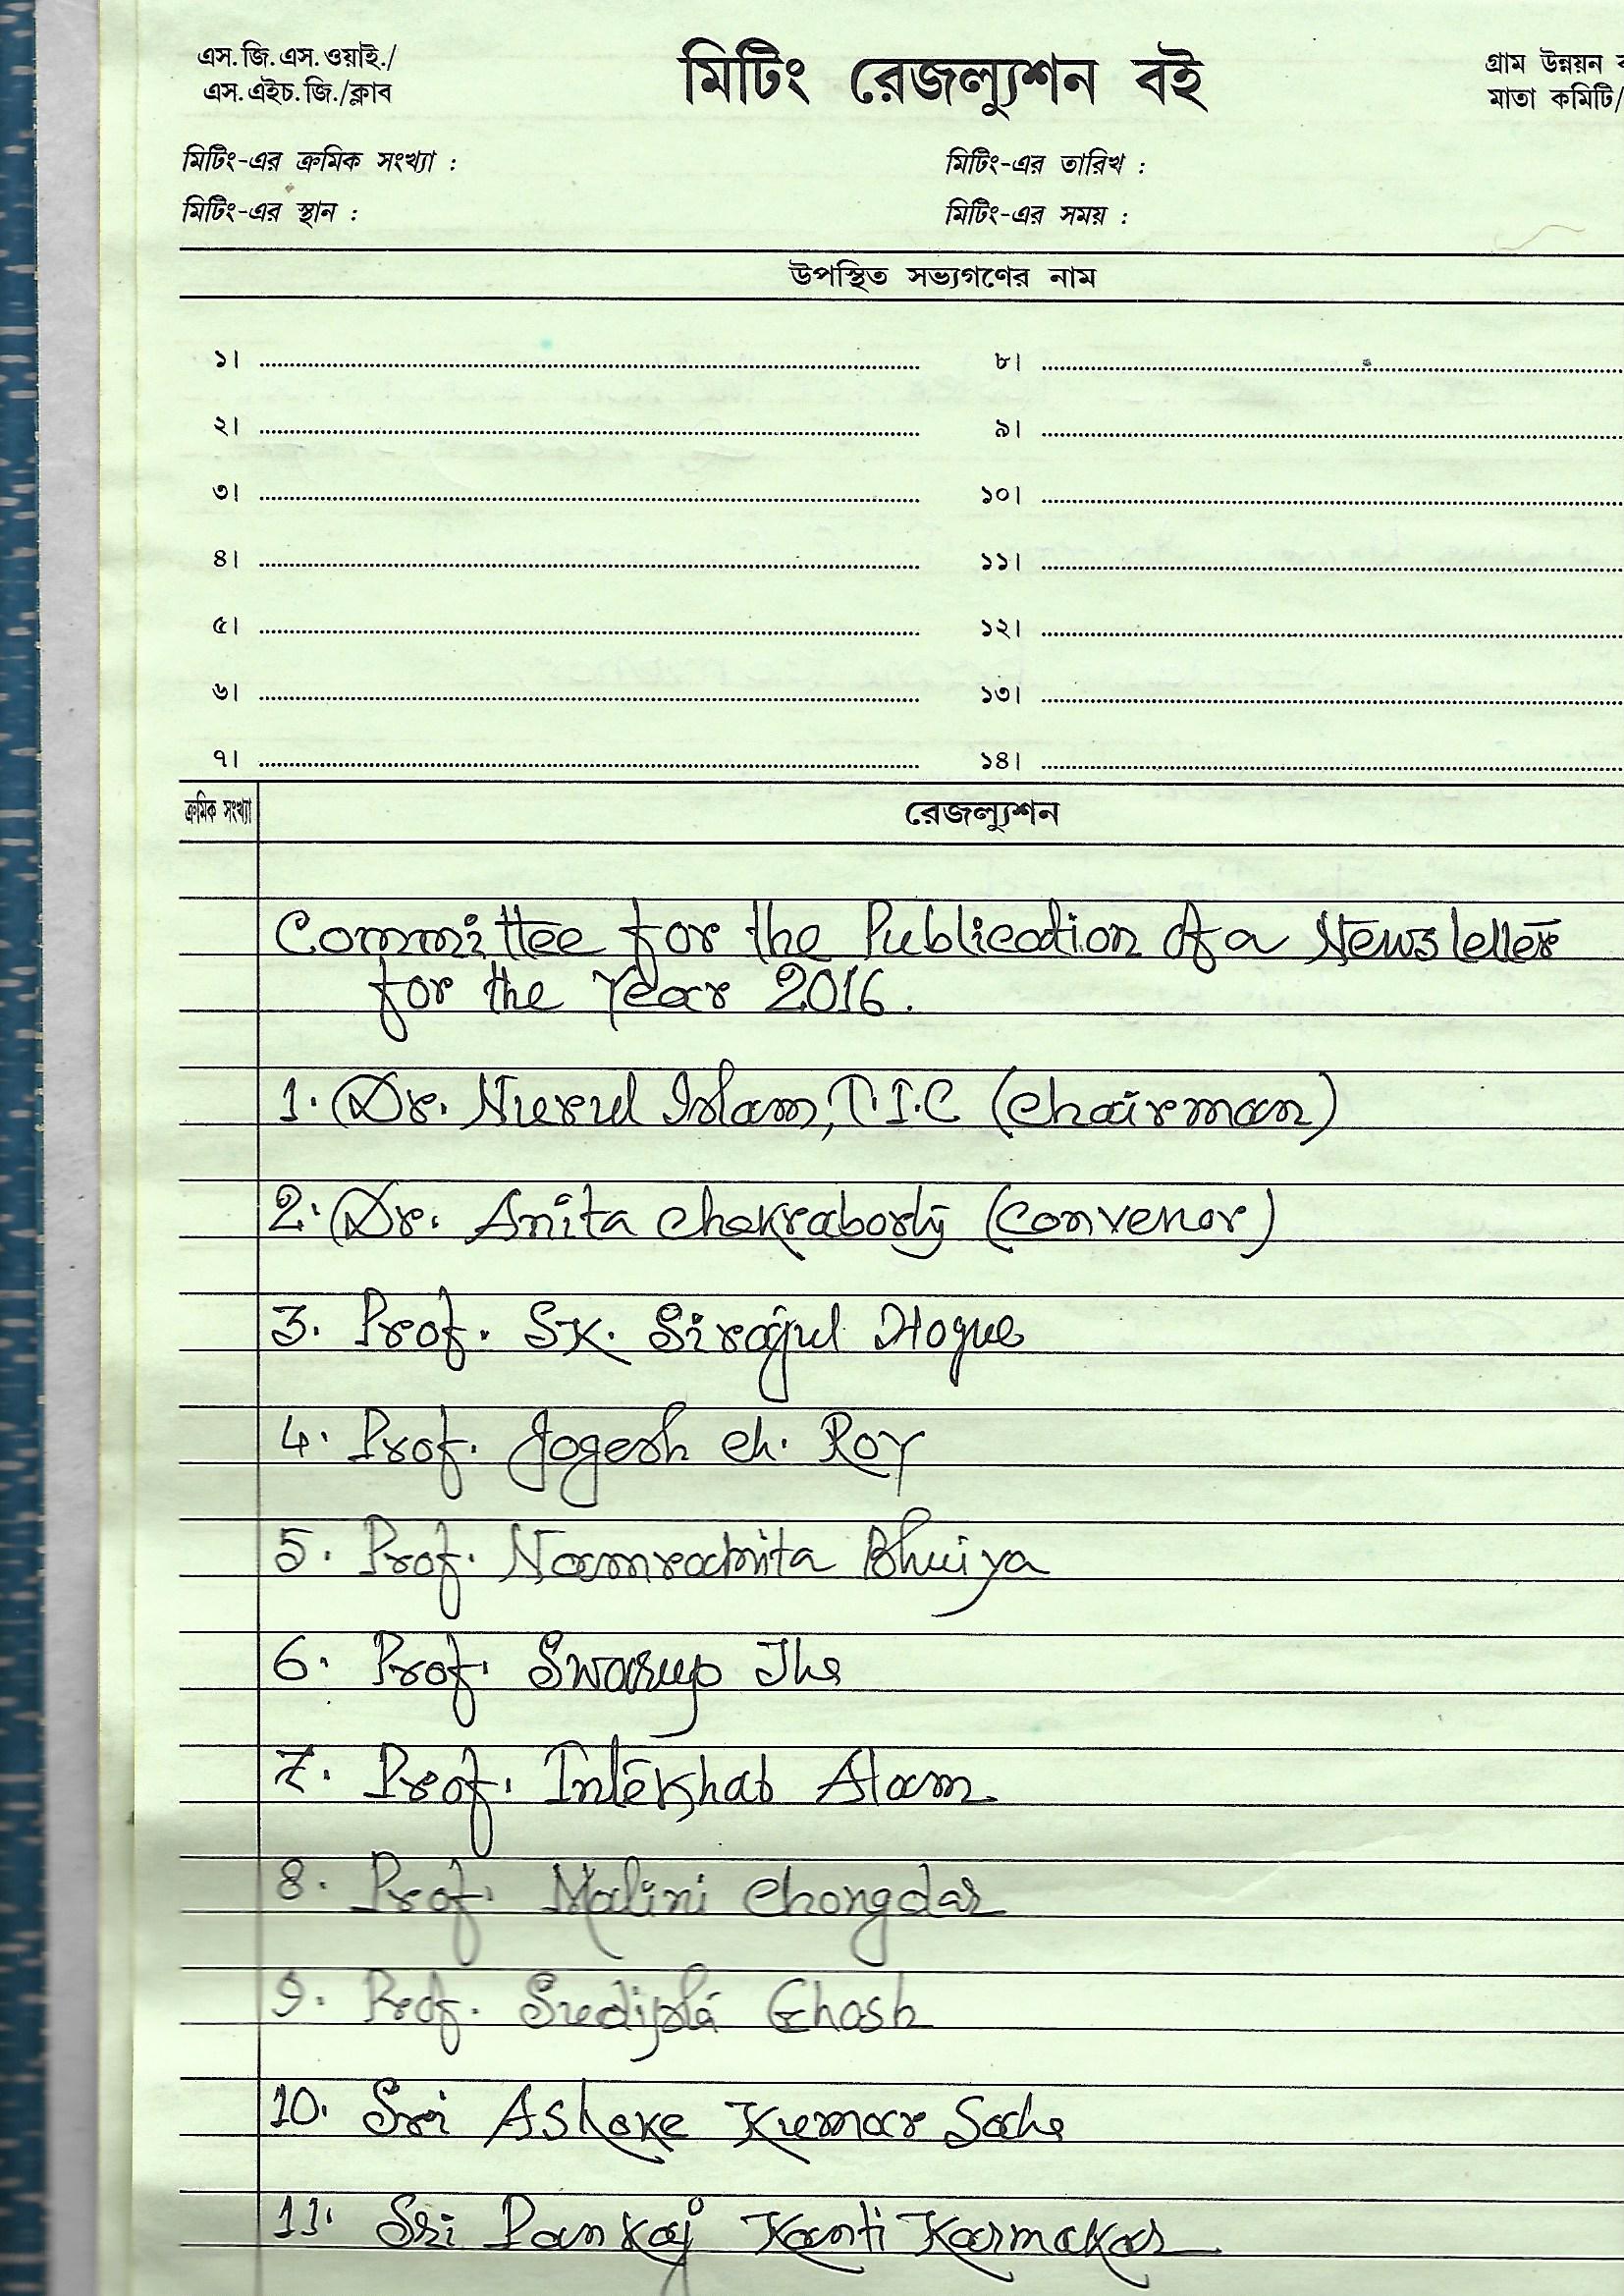 এস.জি.এস.ওয়াই./
এস.এইচ.জি./ক্লাব
মিটিং রেজল্যুশন বই
গ্রাম উন্নয়ন
মাতা কমিটি/
মিটিং-এর ক্রমিক সংখ্যা :
মিটিং-এর তারিখ :
মিটিং-এর স্থান :
মিটিং-এর সময় :
উপস্থিত সভ্যগণের নাম
১।
৮।
২।
৯।
৩।
১০।
৪।
১১।
৫।
১২।
৬।
১৩।
৭।
১৪।
ক্রমিক সংখ্যা
রেজল্যুশন
Committee for the Publication of a Newsletter
for the Year 2016.
1. Dr. Nurul Islam, T.I.C (Chairman)
2. Dr. Anita Chakraborty (Convenor)
3. Prof. SK. Sirajul Hoque
4. Prof. Jogesh Ch. Roy
5. Prof. Bhuiya
6. Prof. Swarup Jha
7. Prof. Intekhab Alam
8. Prof. Malini Chongdar
9. Prof. Sudipta Ghosh
10. Sri Ashoke Kumar Saha
11. Sri Pankaj Kanti Karmakar